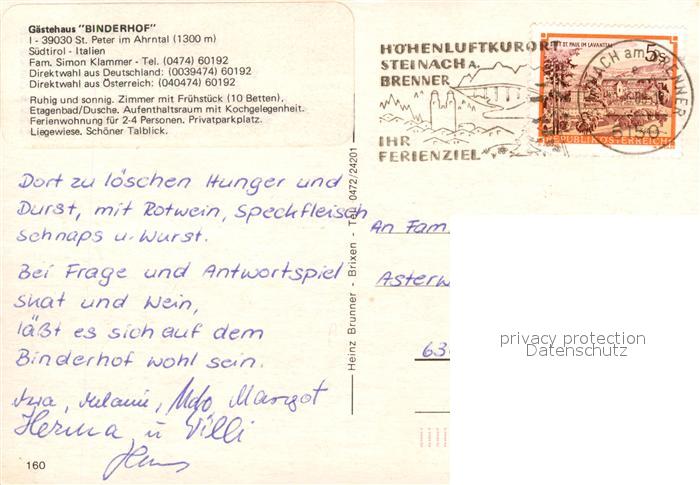 Gästehaus "BINDERHOF"
I - 39030 St. Peter im Ahrntal (1300 m)
Südtirol - Italien
Fam. Simon Klammer - Tel. (0474) 60192
Direktwahl aus Deutschland: (0039474) 60192
Direktwahl aus Österreich: (040474) 60192
Ruhig und sonnig. Zimmer mit Frühstück (10 Betten),
Etagenbad/Dusche. Aufenthaltsraum mit Kochgelegenheit.
Ferienwohnung für 2-4 Personen. Privatparkplatz.
Liegewiese. Schöner Talblick.
Dort zu löschen Hunger und
Durst, mit Rotwein, Speckfleisch
Schnaps u. Wurst.
Bei Frage und Antwortspiel
Skat und Wein,
läßt es sich auf dem
Binderhof wohl sein.
Melanie, Udo, Margot
Herma u Villi
160
Heinz Brunner - Brixen - Tel. 0472/24201
HÖHENLUFTKURORT
STEINACH A.
BRENNER
IHR
FERIENZIEL
STIFT ST. PAUL IM LAVANTTAL
5S
REPUBLIK ÖSTERREICH
STEINACH am BRENNER
6150
An Fam
Asterw
63
privacy protection
Datenschutz